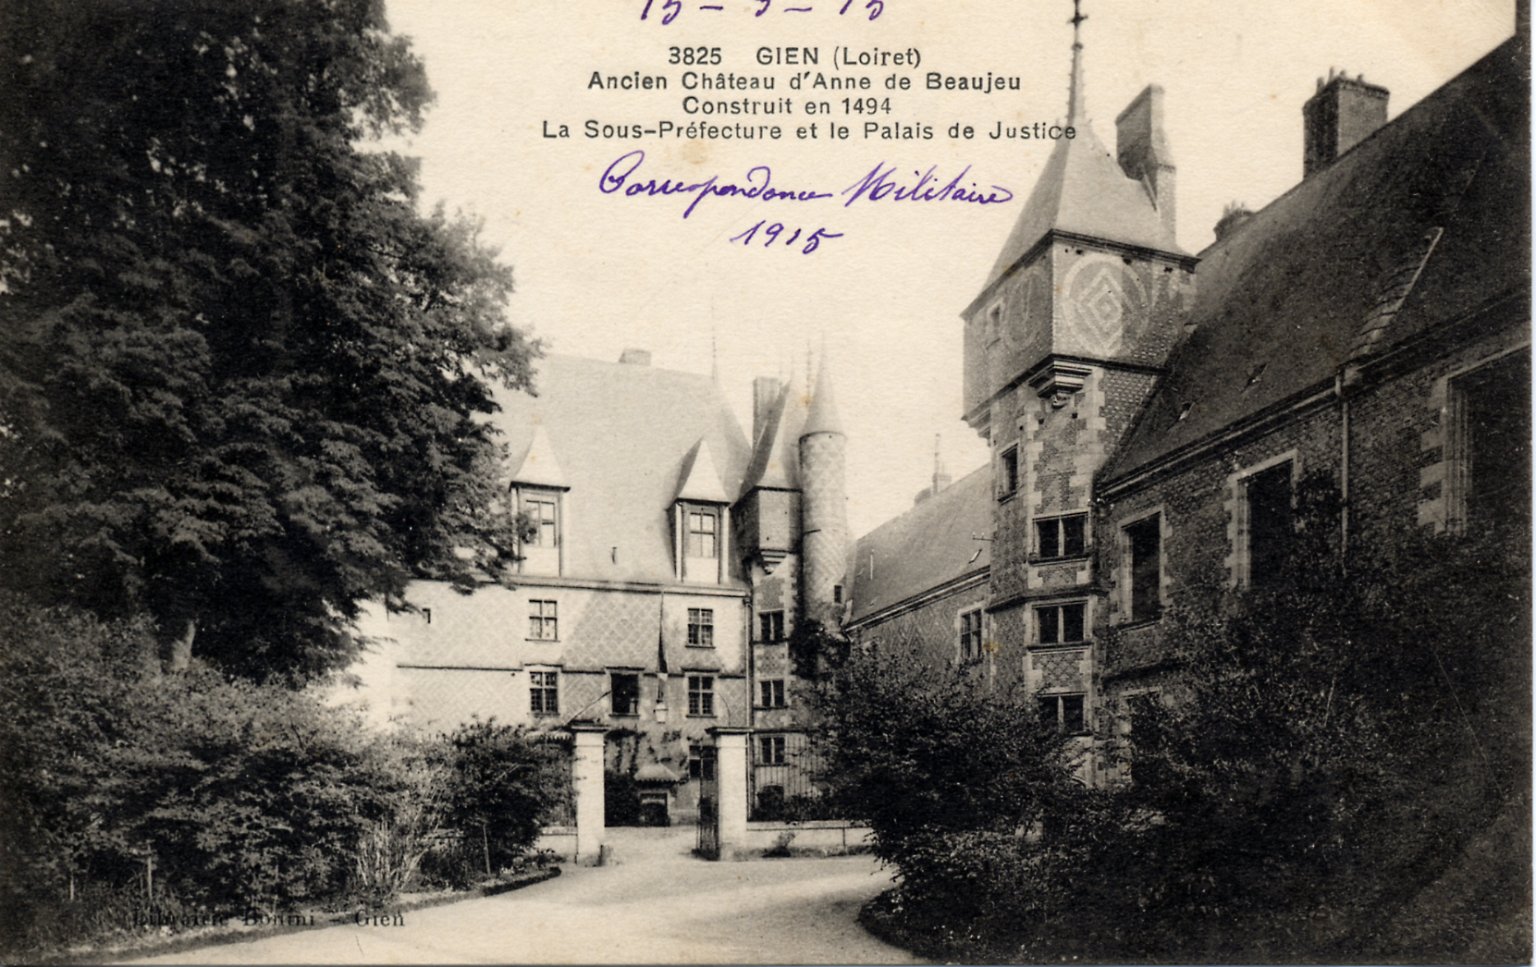 15 - 9 - 15
3825 GIEN (Loiret)
Ancien Château d'Anne de Beaujeu
Construit en 1494
La Sous-Préfecture et le Palais de Justice
Correspondance Militaire
1915
Librairie Bonini - Gien